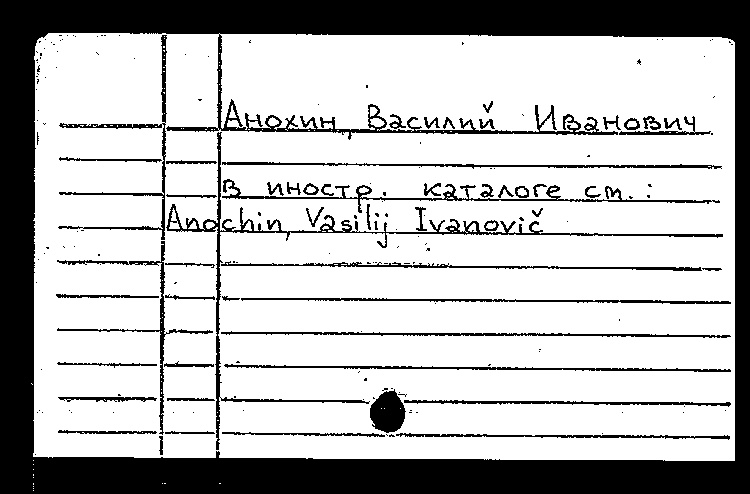 Анохин, Василий Иванович
в иностр. каталоге см.:
Anochin, Vasilij Ivanovič